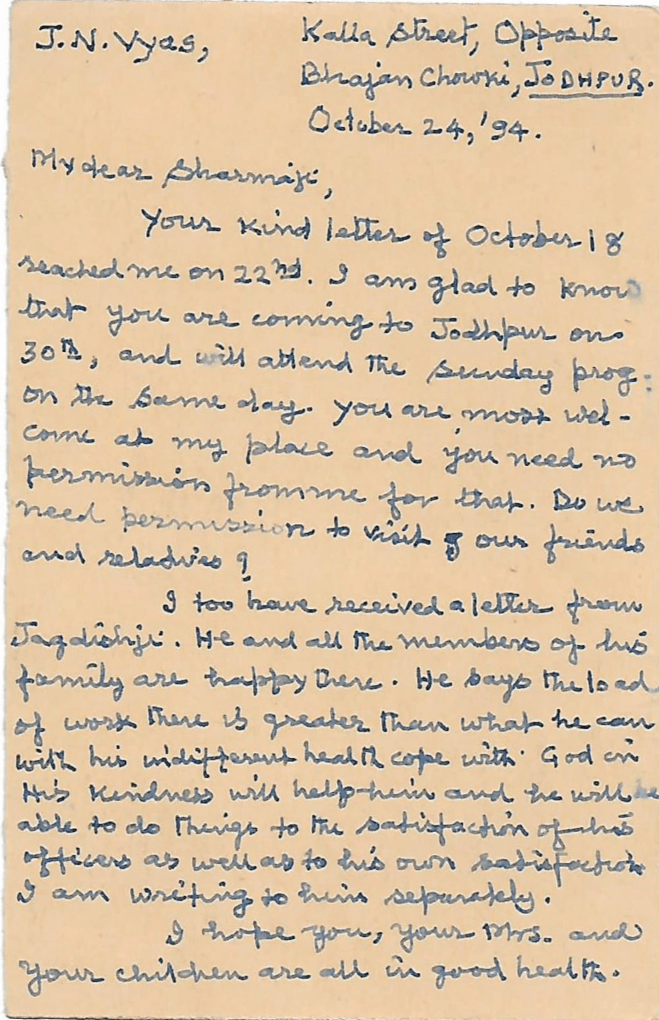 J.N. Vyas,
Kalla Street, Opposite
Bhajan Chowki, JODHPUR.
October 24, '94.
My dear Sharmaji,
Your kind letter of October 18
reached me on 22nd. I am glad to know
that you are coming to Jodhpur on
30th, and will attend the Sunday prog:
on the same day. You are most wel-
come at my place and you need no
permission from me for that. Do we
need permission to visit our friends
and relatives?
I too have received a letter from
Jagdishji. He and all the members of his
family are happy there. He says the load
of work there is greater than what he can
with his indifferent health cope with. God in
His kindness will help him and he will be
able to do things to the satisfaction of his
officers as well as to his own satisfaction
I am writing to him separately.
I hope you, your Mrs. and
your children are all in good health.